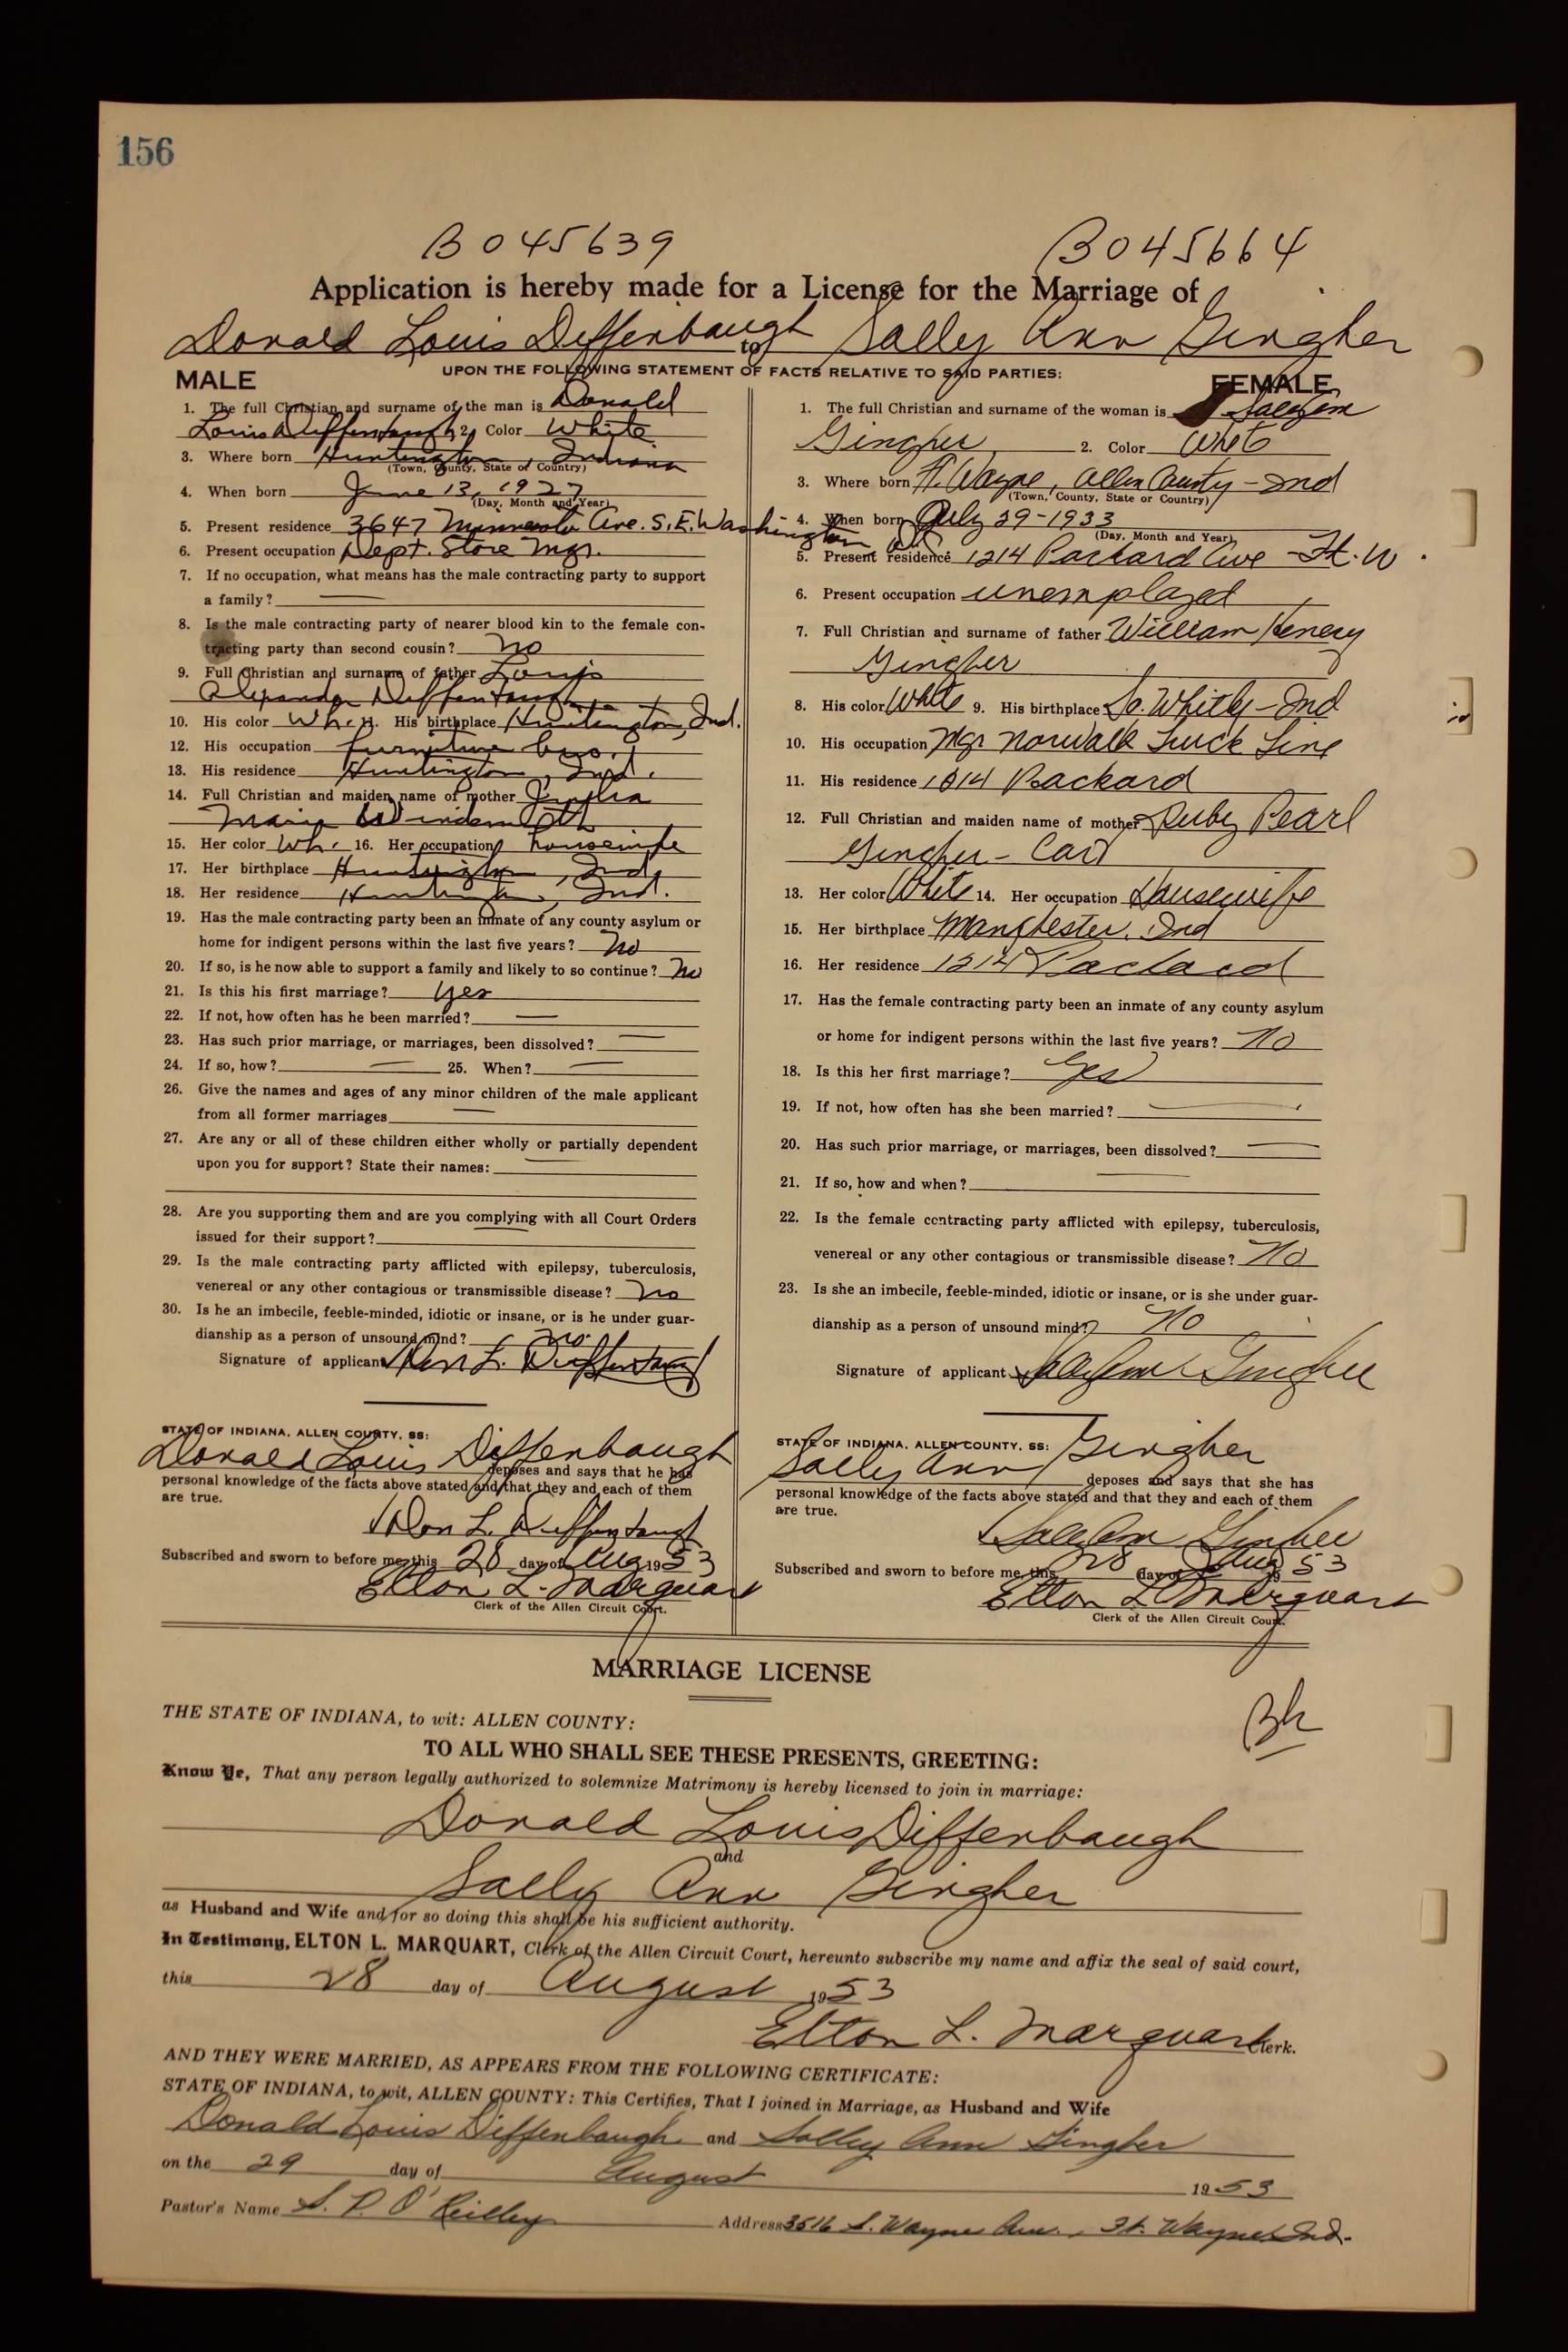 156
B 045639 B 045664
Application is hereby made for a License for the Marriage of
Donald Louis Diffenbaugh to Sally Ann Gingher
UPON THE FOLLOWING STATEMENT OF FACTS RELATIVE TO SAID PARTIES:
MALE
1. The full Christian and surname of the man is Donald
Louis Diffenbaugh 2. Color White
3. Where born Huntington, Indiana
(Town, County, State or Country)
4. When born June 13, 1927
(Day, Month and Year)
5. Present residence 3647 Minnesota Ave. S.E. Washington DC
6. Present occupation Dept. Store Mgr.
7. If no occupation, what means has the male contracting party to support
a family? —
8. Is the male contracting party of nearer blood kin to the female con-
tracting party than second cousin? no
9. Full Christian and surname of father Louis
Alexander Diffenbaugh
10. His color Wh. 11. His birthplace Huntington, Ind.
12. His occupation furniture bus.
13. His residence Huntington, Ind.
14. Full Christian and maiden name of mother
Marie
15. Her color Wh. 16. Her occupation housewife
17. Her birthplace Huntington, Ind.
18. Her residence Huntington, Ind.
19. Has the male contracting party been an inmate of any county asylum or
home for indigent persons within the last five years? No
20. If so, is he now able to support a family and likely to so continue? No
21. Is this his first marriage? yes
22. If not, how often has he been married? —
23. Has such prior marriage, or marriages, been dissolved? —
24. If so, how? — 25. When? —
26. Give the names and ages of any minor children of the male applicant
from all former marriages —
27. Are any or all of these children either wholly or partially dependent
upon you for support? State their names: —
28. Are you supporting them and are you complying with all Court Orders
issued for their support?
29. Is the male contracting party afflicted with epilepsy, tuberculosis,
venereal or any other contagious or transmissible disease? no
30. Is he an imbecile, feeble-minded, idiotic or insane, or is he under guar-
dianship as a person of unsound mind? no
Signature of applicant Don L. Diffenbaugh
STATE OF INDIANA, ALLEN COUNTY, SS:
Donald Louis Diffenbaugh deposes and says that he has
personal knowledge of the facts above stated and that they and each of them
are true.
Don L. Diffenbaugh
Subscribed and sworn to before me, this 28 day of Aug 1953
Elton L. Marquart
Clerk of the Allen Circuit Court.
FEMALE
1. The full Christian and surname of the woman is Sally Ann
Gingher 2. Color White
3. Where born Ft. Wayne, Allen County - Ind
(Town, County, State or Country)
4. When born July 29-1933
(Day, Month and Year)
5. Present residence 1214 Packard Ave - Ft. W.
6. Present occupation unemployed
7. Full Christian and surname of father William Henery
Gingher
8. His color White 9. His birthplace So. Whitly - Ind
10. His occupation Mgr Norwalk Truck Line
11. His residence 1214 Packard
12. Full Christian and maiden name of mother Ruby Pearl
Gingher -
13. Her color White 14. Her occupation Housewife
15. Her birthplace Manchester, Ind
16. Her residence 1214 Packard
17. Has the female contracting party been an inmate of any county asylum
or home for indigent persons within the last five years? No
18. Is this her first marriage? Yes
19. If not, how often has she been married? —
20. Has such prior marriage, or marriages, been dissolved? —
21. If so, how and when? —
22. Is the female contracting party afflicted with epilepsy, tuberculosis,
venereal or any other contagious or transmissible disease? No
23. Is she an imbecile, feeble-minded, idiotic or insane, or is she under guar-
dianship as a person of unsound mind? No
Signature of applicant Sally Ann Gingher
STATE OF INDIANA, ALLEN COUNTY, SS:
Sally Ann Gingher deposes and says that she has
personal knowledge of the facts above stated and that they and each of them
are true.
Sally Ann Gingher
Subscribed and sworn to before me, this 28 day of Aug 1953
Elton L. Marquart
Clerk of the Allen Circuit Court.
MARRIAGE LICENSE
Bh
THE STATE OF INDIANA, to wit: ALLEN COUNTY:
TO ALL WHO SHALL SEE THESE PRESENTS, GREETING:
Know Ye, That any person legally authorized to solemnize Matrimony is hereby licensed to join in marriage:
Donald Louis Diffenbaugh
and
Sally Ann Gingher
as Husband and Wife and for so doing this shall be his sufficient authority.
In Testimony, ELTON L. MARQUART, Clerk of the Allen Circuit Court, hereunto subscribe my name and affix the seal of said court,
this 28 day of August 1953
Elton L. Marquart Clerk.
AND THEY WERE MARRIED, AS APPEARS FROM THE FOLLOWING CERTIFICATE:
STATE OF INDIANA, to wit, ALLEN COUNTY: This Certifies, That I joined in Marriage, as Husband and Wife
Donald Louis Diffenbaugh and Salley Ann Gingher
on the 29 day of August 1953
Pastor's Name S. P. O'Reilley Address 3516 S. Wayne Ave., Ft. Wayne Ind.